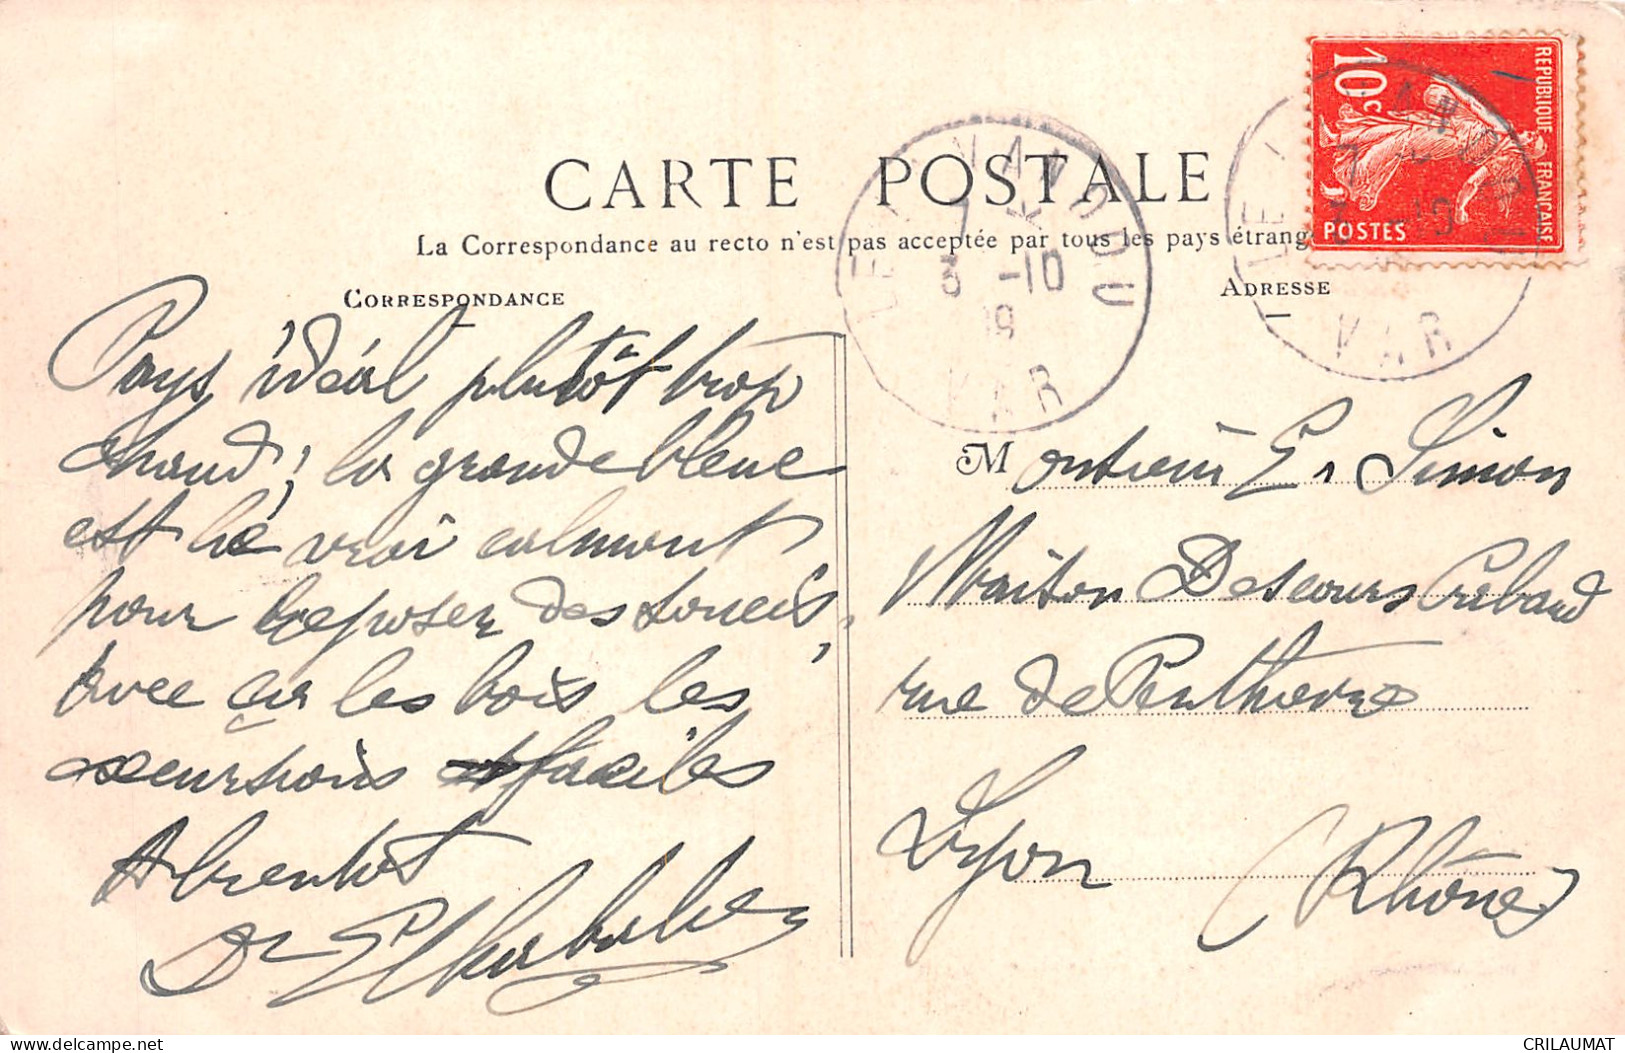 CARTE POSTALE
La Correspondance au recto n'est pas acceptée par tous les pays étrang
CORRESPONDANCE
ADRESSE
REPUBLIQUE FRANÇAISE
10c
POSTES
LE LAVANDOU
7 *
3 -10
VAR
VAR
Pays idéal plutôt trop
chaud; la grande bleue
est là vrai calmant
pour reposer des soucis,
avec ça les bois les
excursions faciles
A bientôt
Dr
Monsieur Simon
Maison Descours Cribaud
rue de Penthievre
Lyon (Rhône)
www.delcampe.net
CRILAUMAT